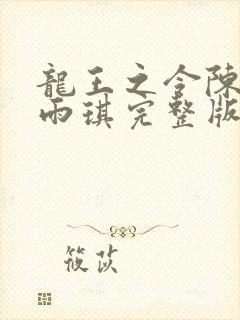 龍王之令陳
雨琪完整版
筱苡